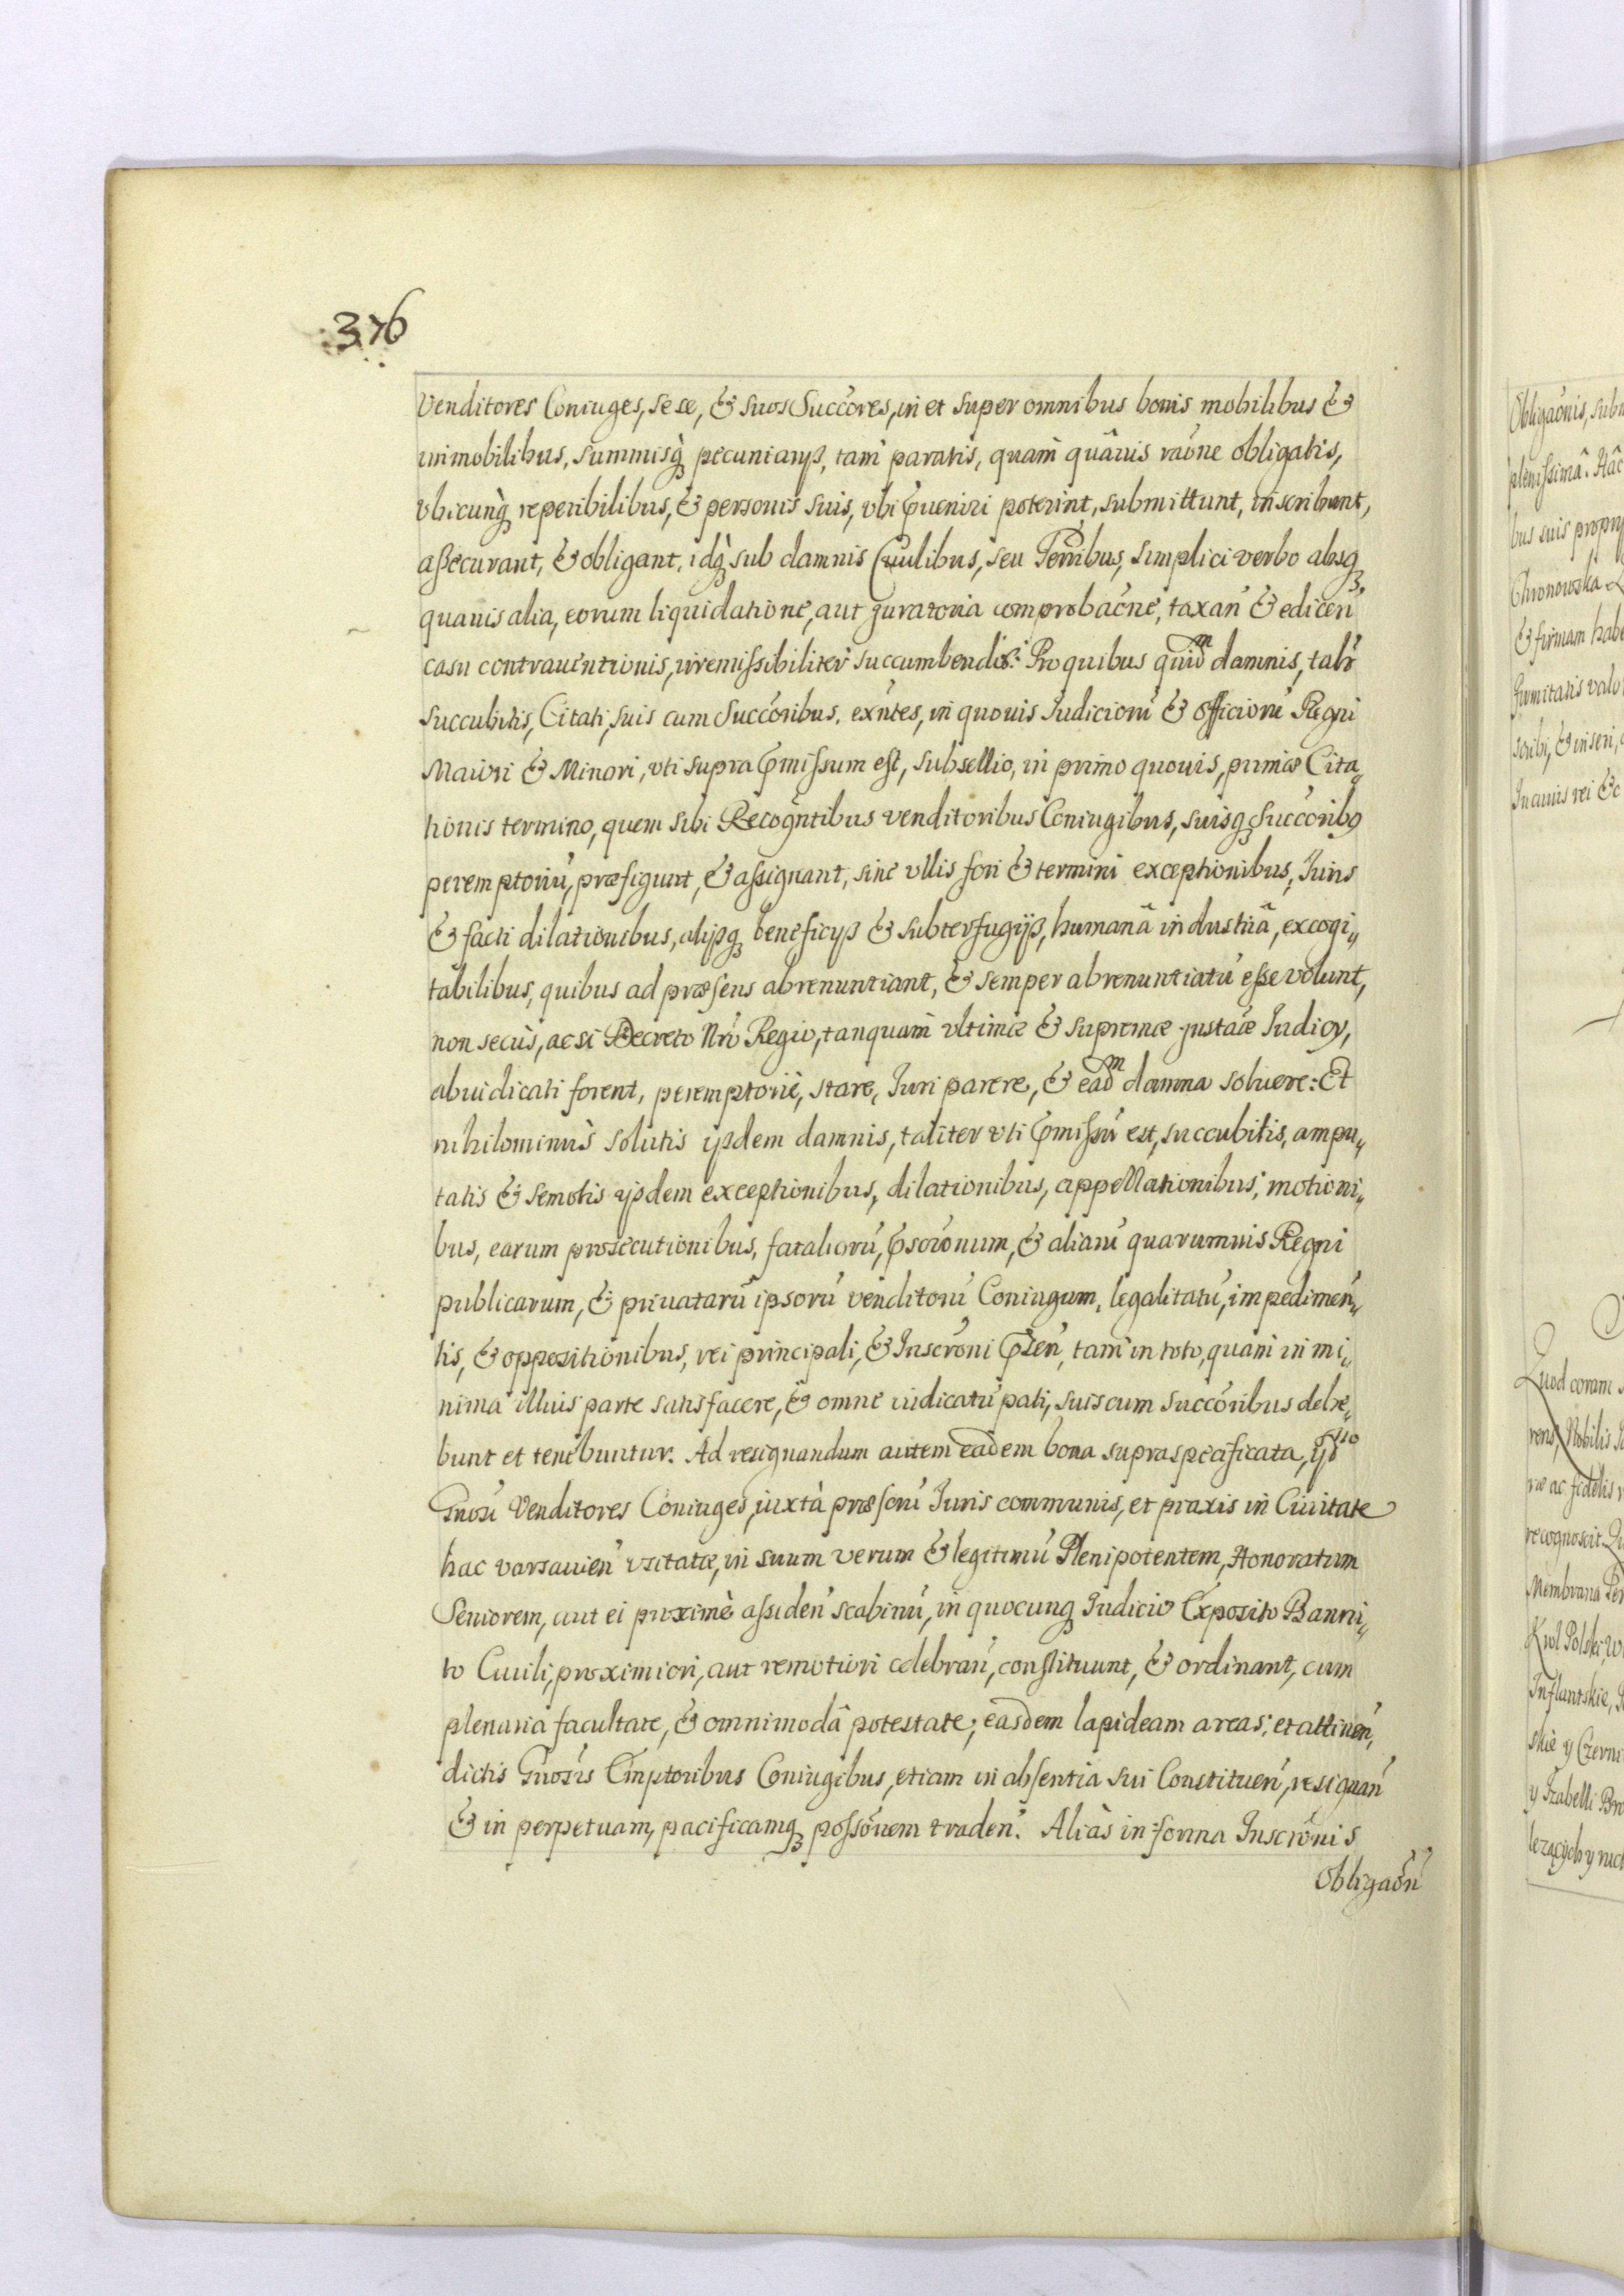 376
Venditores Coniuges, sese, & suos Succ̃ores, in et super omnibus bonis mobilibus &
immobilibus, summisq̀ꝫ pecuniarijs, tam̀ paratis, quam̀ quâuis rãone obligatis,
vbicunq̀ꝫ reperibilibus, & personis suis, vbi p̃ueniri poterint, submittunt, inscribunt,
assecurant, & obligant, idq̀ꝫ sub damnis Ciuilibus, seu Terr̃ibus, simplici verbo absqꝫ
quauis alia, eorum liquidatione, aut juratoria comprobãcne, taxan̄ & edicen̄
casu contrauentionis, irremissibiliter succumbendis: Pro quibus quidm damnis, talr̄
succubitis, Citati, suis cum Succ̃oribus, exñtes, in quouis Iudicioru̅ & Officioru̅ Regni
Maiori & Minori, vti supra p̃missum est, subsellio, in primo quouis, primæ Cita„
tionis termino, quem sibi Recogñtibus venditoribus Coniugibus, suisqꝫ Succ̃oribꝫ
peremptoriu̅, præfigunt, & assignant, sine vllis fori & termini exceptionibus, Iuris
& facti dilationibus, alijsqꝫ beneficijs & subterfugijs, humanâ industriâ, excogi„
tabilibus, quibus ad præsens abrenuntiant, & semper abrenuntiatu̅ esse volunt,
non secùs, acsi Decreto Nr̃o Regio, tanquam̀ vltimæ & supremæ justa͠e Iudicy,
abiudicati forent, peremptoriè, stare, Iuri parere, & eadm damna soluere: Et
nihilominùs solutis ijsdem damnis, taliter vti p̃missu̅ est, succubitis, ampu„
tatis & semotis ijsdem exceptionibus, dilationibus, appellationibus, motioni„
bus, earum prosecutionibus, fatalioru̅, p̃scr̃onum, & aliaru̅ quarumuis Regni
publicarum, & priuataru̅ ipsoru̅ venditoru̅ Coniugum, legalitatu̅, impedimen̄„
tis, & oppositionibus, rei principali, & Inscr̃oni p̃zen̄, tam̀ in toto, quam̀ in mi„
nima illius parte satisfacere, & omne iudicatu̅ pati, suis cum succ̃oribus debe„
bunt et tenebuntur. Ad resignandum autem eadem bona supraspecificata, ijd
Gñosi Venditores Coniuges, iuxtà præscru̅ Iuris communis, et praxis in Ciuitate
hac varsauien̄ vsitatæ, in suum verum & legitimu̅ Plenipotentem, Honoratum
Seniorem, aut ei proximè assiden̄ scabinu̅, in quocunqꝫ Iudicio Exposito Banni„
to Ciuili, proximiori, aut remotiori celebran̄, constituunt, & ordinant, cum
plenaria facultate, & omnimodâ potestate; easdem lapideam areas; et attinen̄,
dictis Gñosis Emptoribus Coniugibus, etiam in absentia sui Constituen̄, resignan̄
& in perpetuam, pacificamqꝫ poss̃onem traden̄. Aliàs in forma Inscr̃onis
Obligaõn̄